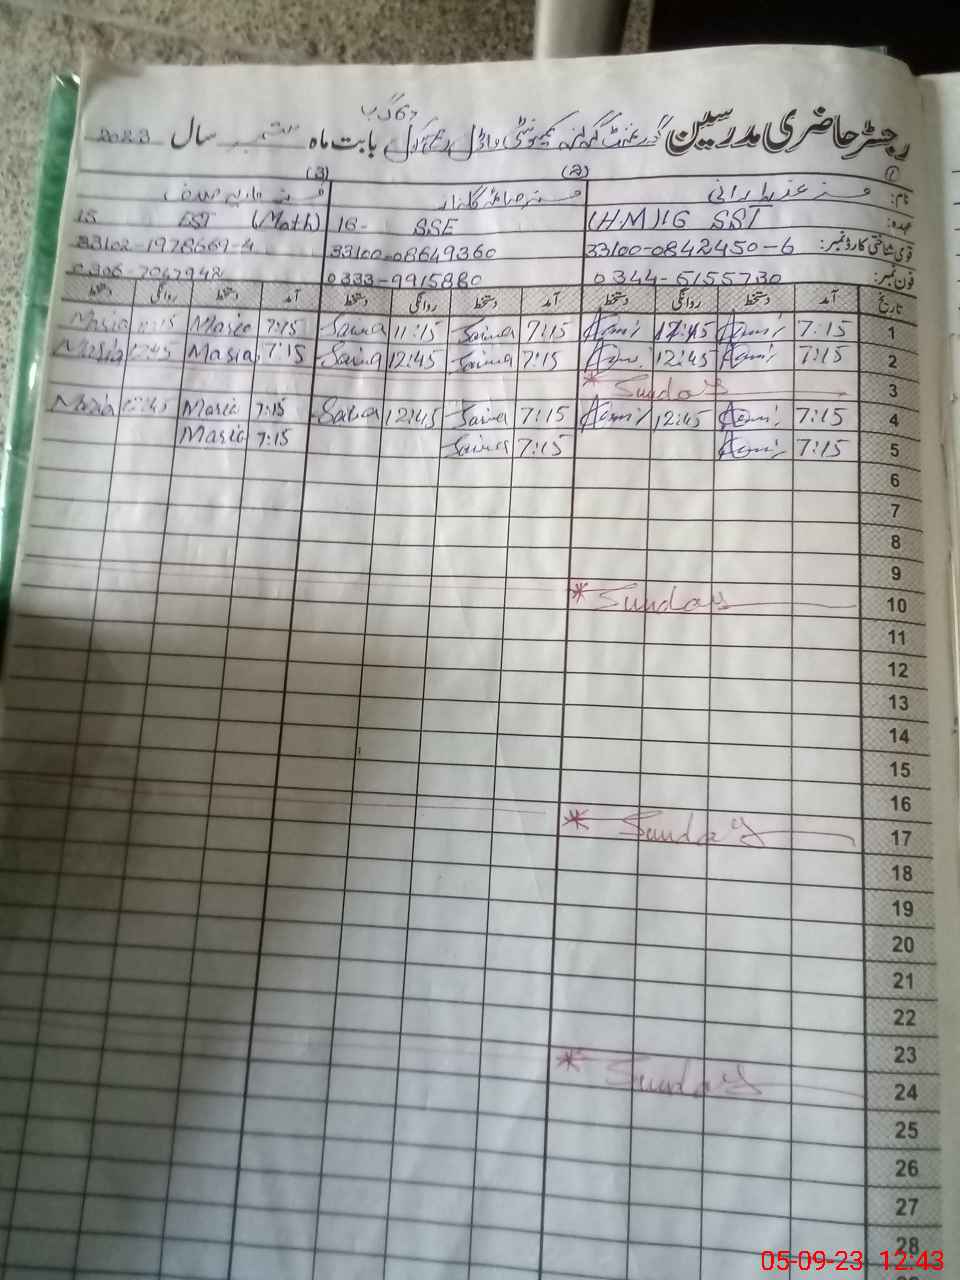 67 گ ب
رجسٹر حاضری مدرسین گورنمنٹ کمیونٹی ماڈل بابت ماہ ستمبر سال 2023
(1) (2) (3)
نام: مسز
عہدہ: (H.M) 16 SST 16- SSE 15 EST (Math)
قومی شناختی کارڈ نمبر: 33100-0842450-6 33100-08649360 33102-1978669-4
فون نمبر: 0344-6155730 0333-9915880 0306-7047948
تاریخ آمد دستخط روانگی دستخط آمد دستخط روانگی دستخط آمد دستخط روانگی دستخط
1 7:15 12:45 7:15 Saima 11:15 Saima 7:15 Maria 11:15 Maria
2 7:15 12:45 7:15 Saima 12:45 Saima 7:15 Maria 12:45 Maria
3 * Sunday
4 7:15 12:45 7:15 Saima 12:45 Saima 7:15 Maria 12:45 Maria
5 7:15 7:15 Saima 7:15 Maria
6
7
8
9
10 * Sunday
11
12
13
14
15
16
17 * Sunday
18
19
20
21
22
23
24 * Sunday
25
26
27
28
05-09-23 12:43